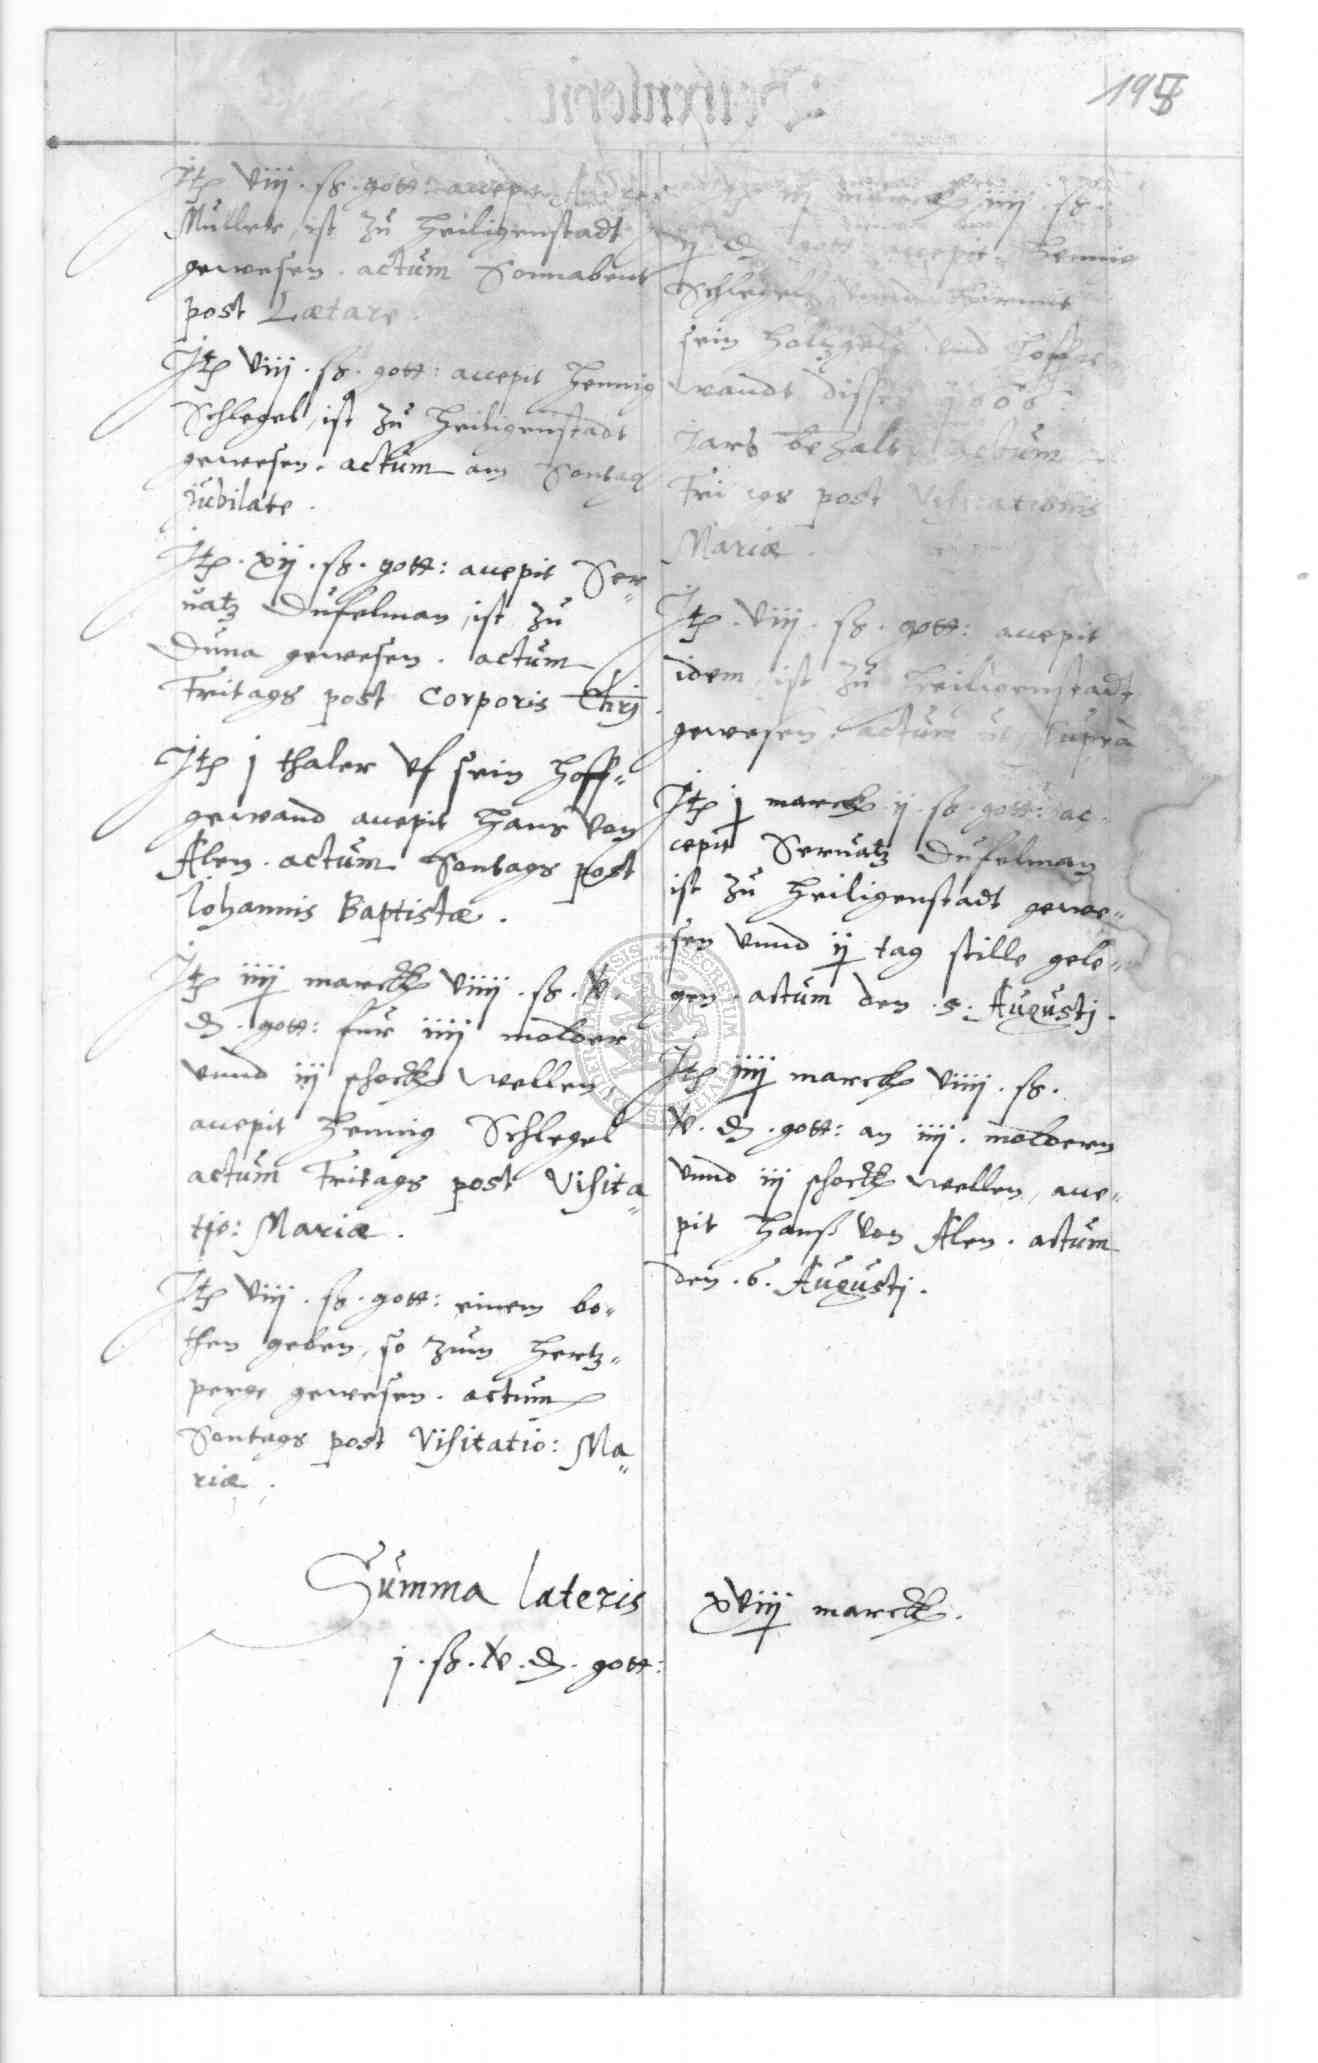 195
Jt viij . ß . gott : accepit
Müller, ist zu Heiligenstadt
gewesen . actum Sonnabent
post Lætare .
Jt viij . ß . gott : accepit Hennig
Schlegel, ist zu Heiligenstadt
gewesen . actum am Sontag
Jubilate .
Jt . xij . ß . gott : accepit Ser„
uatz Duselman, ist zu
Duna gewesen . actum
Fritags post Corporis Chrj .
Jt j thaler vf sein hoff„
gewand accepit Hans von
Alen . actum Sontags post
Johannis Baptistæ .
Jt iiij marck viiij . ß . x .
₰ . gott : für iiij molder
vnnd iij schock wellen,
accepit Hennig Schlegel
actum Fritags post Visita„
tjo : Mariæ .
Jt viij . ß . gott : einem bo„
then geben, so zum Hertz„
perge gewesen . actum
Sontags post Visitatio : Ma„
riæ .
marck iiij . ß .
ij ₰ gott accepit Hennig
Schlegel
sein holtzgelt vnd hoffge
wandt disses
Jars bezalt actum
Fritags post Visitationis
Mariæ .
Jt . viij . ß . gott : accepit
idem, ist zu Heiligenstadt
gewesen . actum ut supra
Jt j marck ij . ß . gott : ac„
cepit Seruatz Duselman
ist zu Heiligenstadt gewe„
sen vnnd ij tag stille gele„
gen . actum den . 5 . Augustj .
Jt iiij marck viiij . ß .
x . ₰ . gott : an iiij . moldern
vnnd iij schock wellen, acce„
pit Hanß von Alen . actum
den . 6 . Augustj .
Summa lateris xviij marck .
j . ß . x . ₰ . gott :